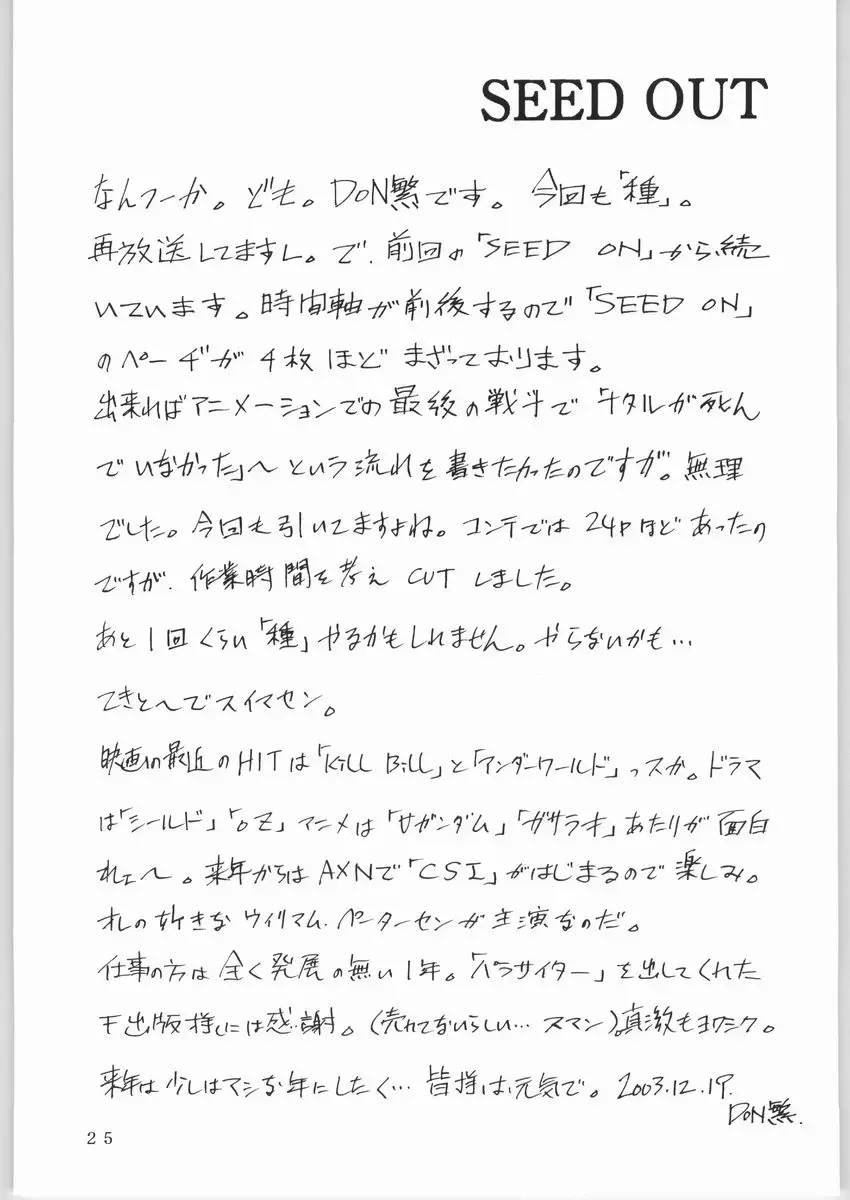 SEED OUT
なんつーか。ども。DON繁です。今回も「種」。
再放送してますし。で、前回の「SEED ON」から続
いています。時間軸が前後するので「SEED ON」
のページが4枚ほどまざっております。
出来ればアニメーションでの最後の戦斗で「
でいなかった」〜という流れを書きたかったのですが。無理
でした。今回も引いてますよね。コンテでは24Pほどあったの
ですが、作業時間を考えCUTしました。
あと1回くらい「種」やるかもしれません。やらないかも…
てきと〜でスイマセン。
映画の最近のHITは「Kill Bill」と「アンダーワールド」っスか。ドラマ
は「シールド」「OZ」アニメは「ガンダム」「ガサラキ」あたりが面白
れェ〜。来年からはAXNで「CSI」がはじまるので楽しみ。
オレの好きなウィリアム・ペーターセンが主演なのだ。
仕事の方は全く発展の無い1年。「パラサイター」を出してくれた
出版様には感謝。(売れてないらしい…スマン)真激もヨロシク。
来年は少しはマシな年にしたく…皆様は元気で。2003.12.19.
DON繁.
25